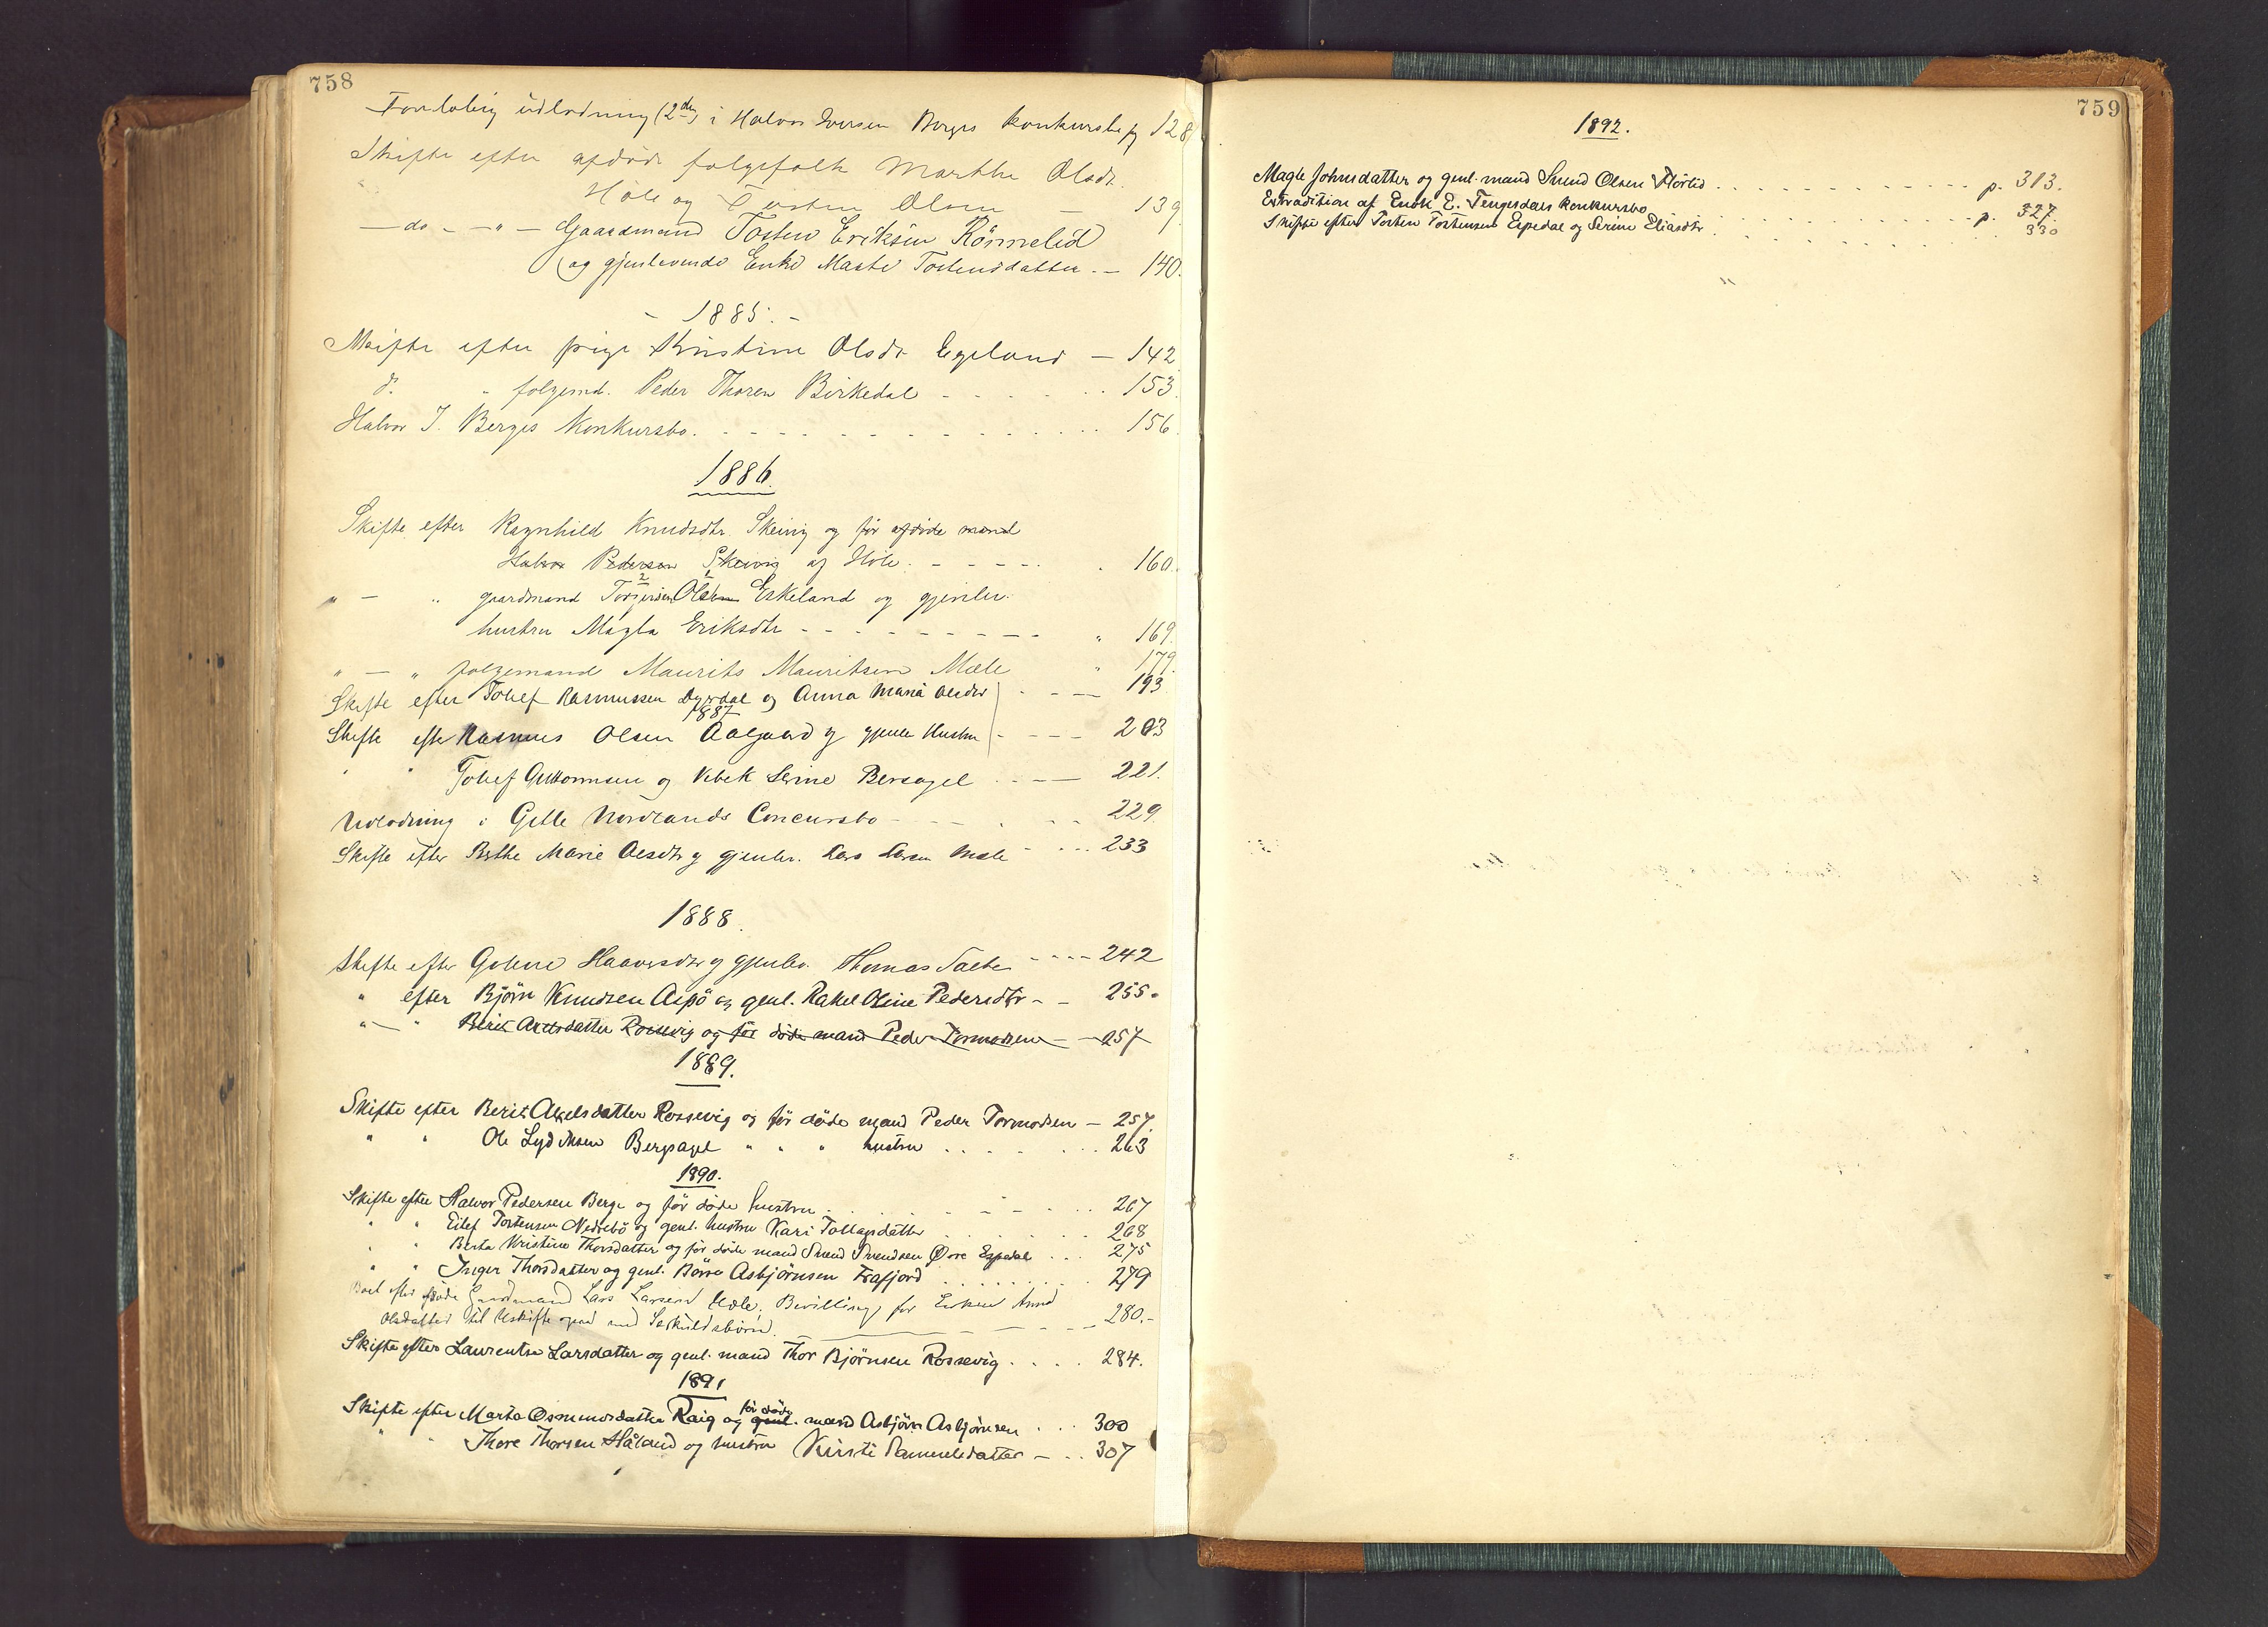 758
Foreløbig udlodning (2den) i Halvor Iversen Berges konkursbo pg 128
Skifte efter afdøde folgefolk Marthe Olsdr.
Høle og Tosten Olsen — 139
— do — " — Gaardmand Tosten Eriksen Rönnelid
(og gjenlevende Enke Marte Tostensdatter. — 140.
- 1885. -
Skifte efter pige Kristine Olsdr Egeland — 142
do " folgemd. Peder Thoren Birkedal - - - - 153.
Halvor I. Berges Konkursbo. - - - - 156.
1886.
Skifte efter Ragnhild Knudsdtr. Skeivig og før afdøde mand
Halvor Pedersen Skeivig af Höle. - - - - - . 160.
" — " gaardmand Torgersen Olsen Eskeland og gjenlev.
hustru Magla Eriksdtr - - - - - - - - " 169.
" — " folgemand Maurits Mauritsen Mæle " 179.
Skifte efter Tollef Rasmussen Dyrdal og Anna Maria Olsdtr - - — 193
1887
Skifte efter Rasmus Olsen Aalgaard og gjenlev Hustru - - - - 203
" " Tollef Guttormsen og Vibek Serine Bersagel - - — 221.
Udlodning i Gitle Nordlands Concursbo - - - - 229
Skifte efter Berthe Marie Olsdtr og gjenlev. Lars Larsen Mæle - - - 233
1888.
Skifte efter Golene Haaversdtr og gjenlev. Thomas Salte - - - - 242
" efter Bjørn Knudsen Aspö og genl. Rakel Oline Pedersdtr - - 255.
" — " Berit Axelsdatter Rossevig og før døde mand Peder Tormodsen — 257
1889.
Skifte efter Berit Axelsdatter Rossevig og för döde mand Peder Tormodsen — 257.
" " Ole Lydiksen Bergsagel " " " hustru . . . . . . 263
1890.
Skifte efter Halvor Pedersen Berge og før døde hustru . . - - . . 267
" " Eilef Tostensen Nedrebö og genl. hustru Kari Tollagsdatter . . . . 268
" " Berta Kristine Thorsdatter og før døde mand Svend Svendsen Øvre Espedal . . . 275
" " Inger Thorsdatter og genl. Börre Asbjörnsen Frafjord . . . . . . . . 279
Boet efter afdøde Gaardmand Lars Larsen Mæle; Bevilling for Enken Anna
Olsdatter til Uskifte med Særkuldsbørn. - - - - 280.-
Skifte efter Laurentse Larsdatter og genl. mand Thor Bjørnsen Rossevig . . . . 284.
1891
Skifte efter Marta Osmundsdatter Raig og genl. før døde mand Asbjörn Asbjørnsen . . . 300
" " Thore Thorsen Håland og hustru Kirsti Samuelsdatter — . . 307
759
1892.
Magle Johnsdatter og genl. mand Svend Olsen Flörlid . . . . . . . . p. 313.
Extradition af Enok E. Tengesdals konkursbo . . . . . . . . p. 327.
Skifte efter Tosten Tostensen Espedal og Serine Eliasdtr . . . . . . . . 330